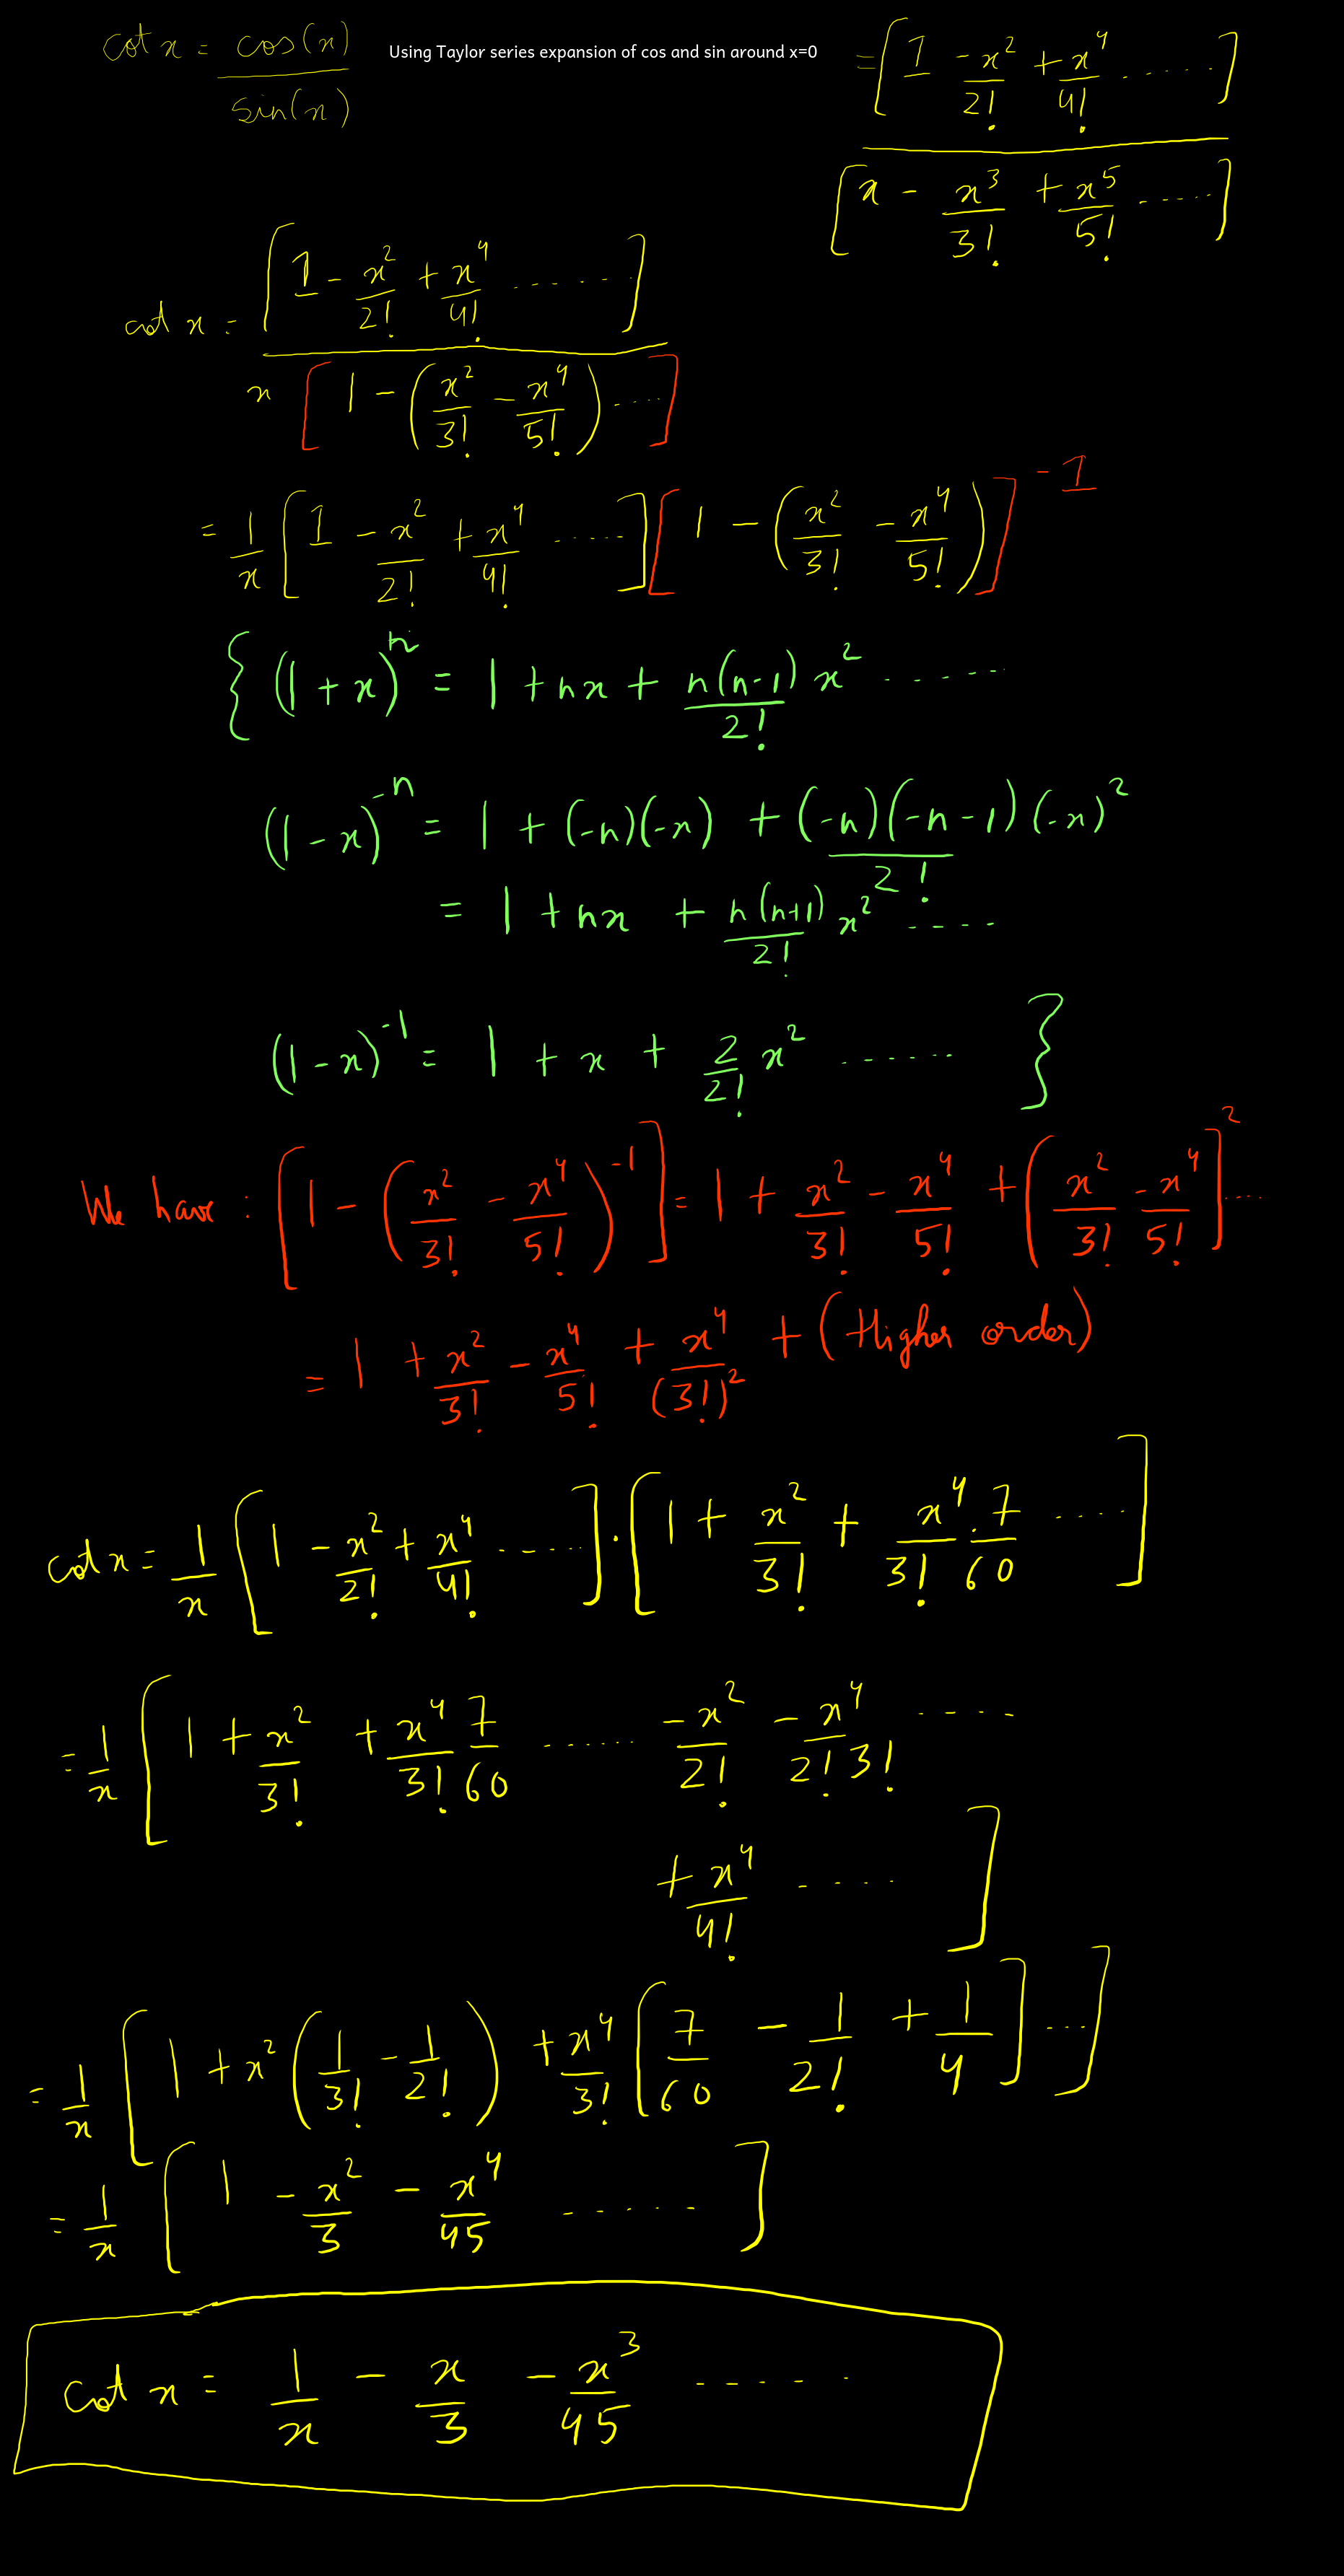 cot x = cos(x)/sin(x) Using Taylor series expansion of cos and sin around x=0 = [1 - x²/2! + x⁴/4! ......] / [x - x³/3! + x⁵/5! ......]
cot x = [1 - x²/2! + x⁴/4! ......] / x[1 - (x²/3! - x⁴/5!) ....]
= 1/x [1 - x²/2! + x⁴/4! ......] [1 - (x²/3! - x⁴/5!)]⁻¹
{ (1 + x)ⁿ = 1 + nx + n(n-1)/2! x² ......
(1 - x)⁻ⁿ = 1 + (-n)(-x) + (-n)(-n-1)/2! (-x)²
= 1 + nx + n(n+1)/2! x² ....
(1 - x)⁻¹ = 1 + x + 2/2! x² ...... }
We have : [1 - (x²/3! - x⁴/5!)⁻¹] = 1 + x²/3! - x⁴/5! + (x²/3! - x⁴/5!]² ....
= 1 + x²/3! - x⁴/5! + x⁴/(3!)² + (Higher order)
cot x = 1/x [1 - x²/2! + x⁴/4! ......] . [1 + x²/3! + x⁴/3! . 7/60 ....]
= 1/x [1 + x²/3! + x⁴/3! 7/60 ...... - x²/2! - x⁴/2!3! ....
+ x⁴/4! .... ]
= 1/x [1 + x² (1/3! - 1/2!) + x⁴/3! [7/60 - 1/2! + 1/4] ...]
= 1/x [1 - x²/3 - x⁴/45 ......]
cot x = 1/x - x/3 - x³/45 ......